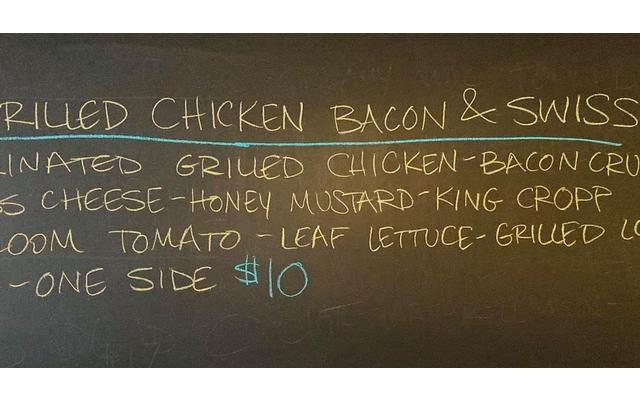 RILLED CHICKEN BACON & SWISS
INATED GRILLED CHICKEN-BACON CRU
SS CHEESE-HONEY MUSTARD-KING CROPP
LOOM TOMATO-LEAF LETTUCE-GRILLED LO
-ONE SIDE $10